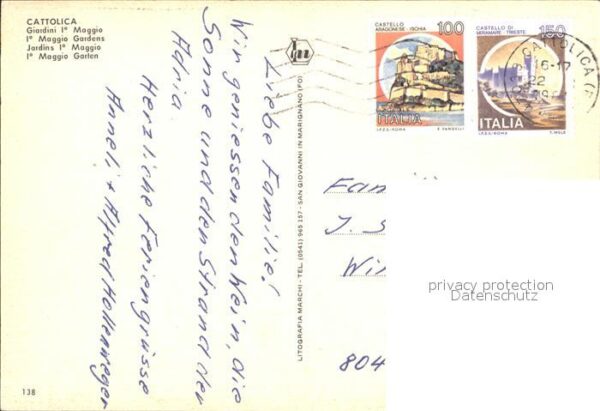 CATTOLICA
Giardini Iº Maggio
Iº Maggio Gardens
Jardins Iº Maggio
Iº Maggio Garten
Liebe Familie!
Wir geniessen den Wein, die
Sonne und den Strand der
Adria.
Herzliche Feriengrüsse
Anneli + Alfred Hollenweger
LITOGRAFIA MARCHI - TEL. (0541) 965 157 - SAN GIOVANNI IN MARIGNANO (FO)
CASTELLO
ARAGONESE - ISCHIA
100
ITALIA
I.P.Z.S.-ROMA E. VANGELLI
CASTELLO DI
MIRAMARE - TRIESTE
150
ITALIA
I.P.Z.S.-ROMA
CATTOLICA
16-17
22
Fam
J. S
Win
804
privacy protection
Datenschutz
138